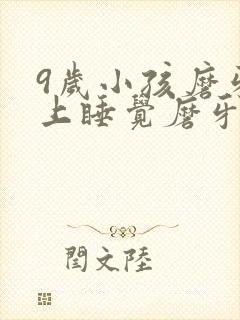 9歲小孩磨牙
上睡覺磨牙
閆文陸